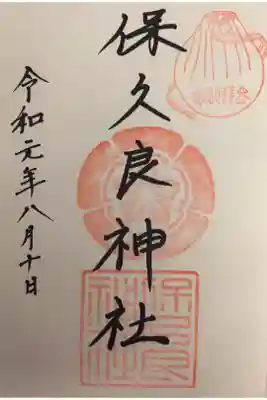 保久良神社
令和元年八月十日
保久良
神社